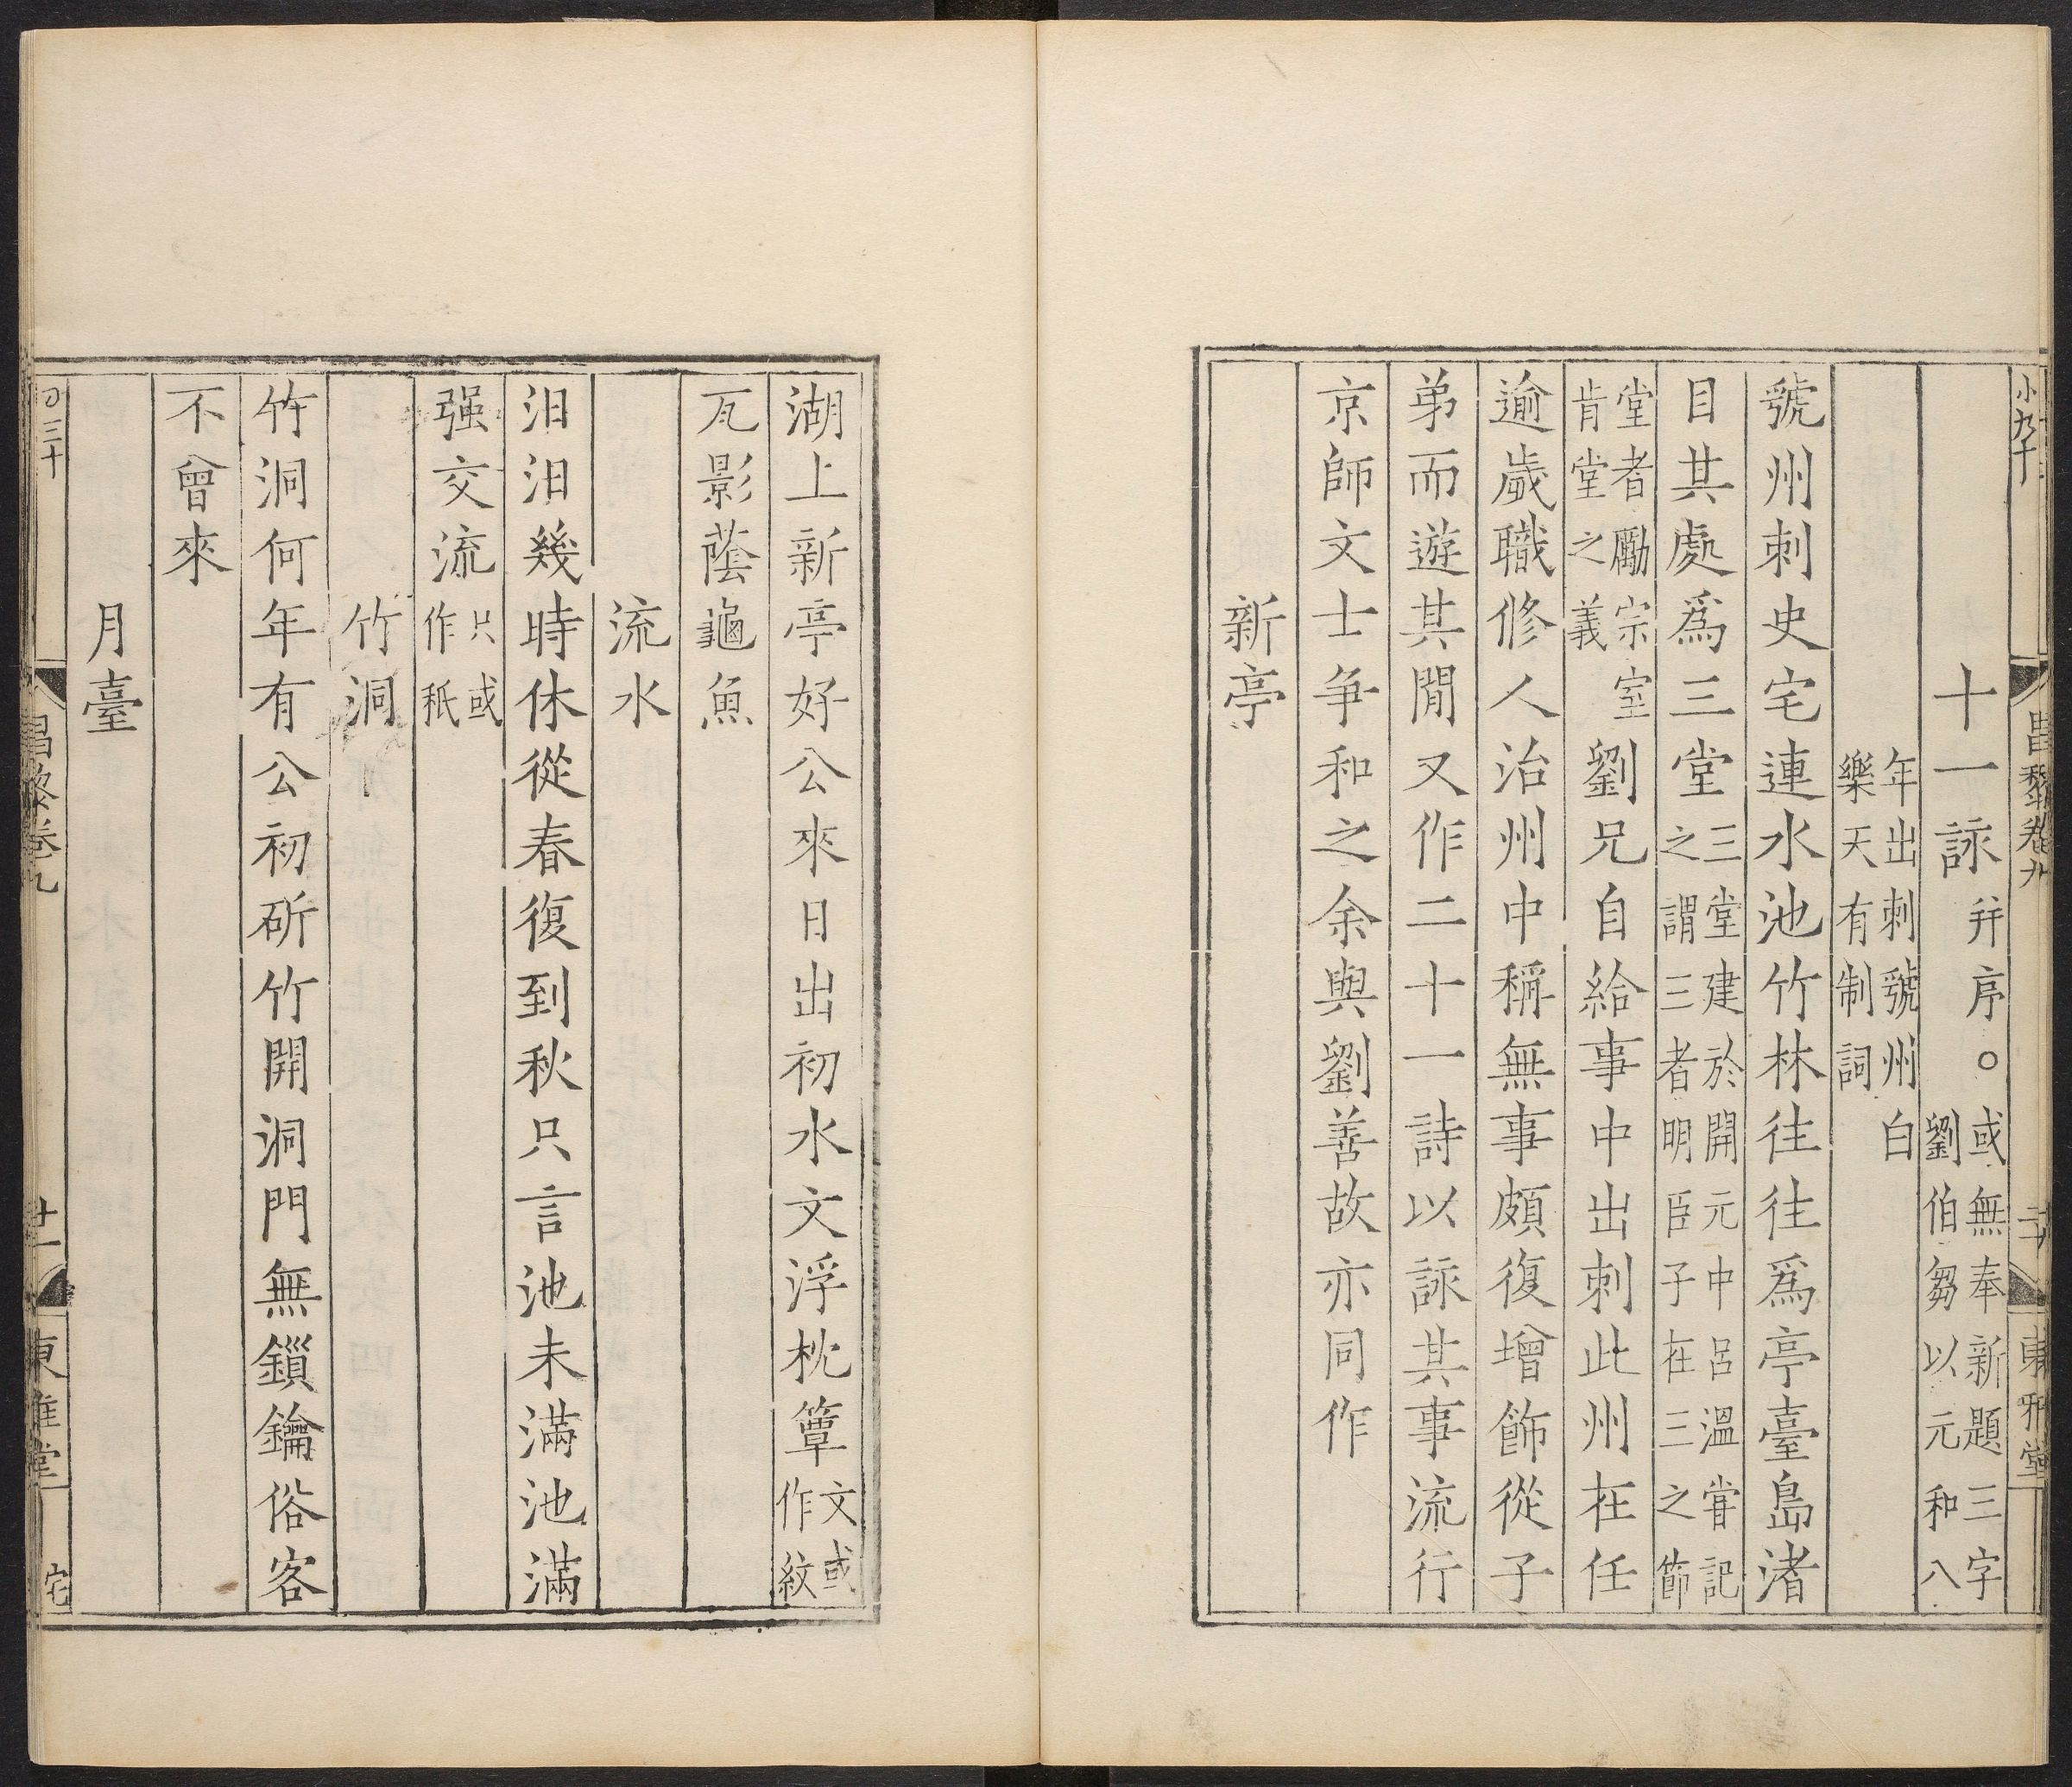 十一詠并序○或無奉新題三字劉伯芻以元和八
年出刺虢州白樂天有制詞
虢州刺史宅連水池竹林往往爲亭臺島渚
目其處爲三堂三堂建於開元中呂溫甞記之謂三者明臣子在三之節
堂者勵宗室肯堂之義劉兄自給事中出刺此州在任
逾歲職修人治州中稱無事頗復增飾從子
弟而遊其間又作二十一詩以詠其事流行
京師文士争和之余與劉善故亦同作
新亭
湖上新亭好公來日出初水文浮枕簟文或作紋
瓦影蔭龜魚
流水
汩汩幾時休從春復到秋只言池未滿池滿
强交流只或作秖
竹洞
竹洞何年有公初斫竹開洞門無鎻鑰俗客
不曾來
月臺
昌黎卷九
二十
東雅堂
昌黎卷九
廿一
東雅堂